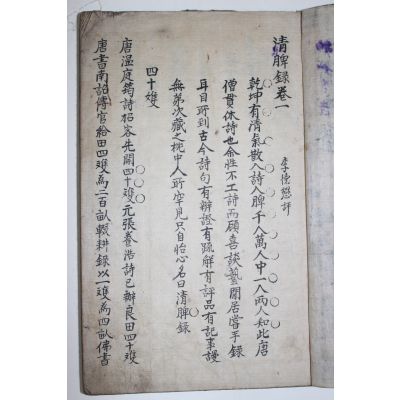 清脾錄卷一
李德懋評
乾坤有清氣散入詩人脾千人萬人中一人兩人知此唐
僧貫休詩也余性不工詩而顧喜談藝閒居嘗手錄
耳目所到古今詩句有辯證有疏解有評品有記事謾
無第次藏之枕中人所罕見只自怡心名曰清脾錄
四十雙
唐溫庭筠詩招客先開四十雙元張養浩詩已辦良田四十雙
唐書南詔傳官給田四雙爲二百畝輟耕錄以一雙爲四畝佛書